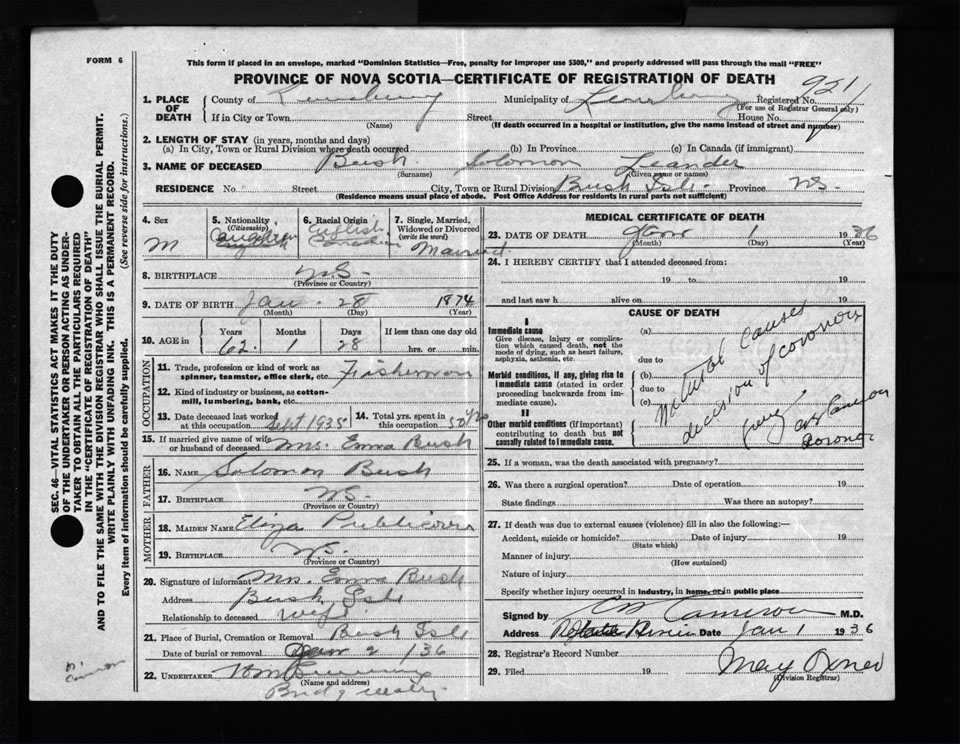 FORM 6
This form if placed in an envelope, marked "Dominion Statistics—Free, penalty for improper use $300," and properly addressed will pass through the mail "FREE"
PROVINCE OF NOVA SCOTIA—CERTIFICATE OF REGISTRATION OF DEATH
1. PLACE OF DEATH
County of Lunenburg Municipality of Lunenburg Registered No. 921
(For use of Registrar General only)
If in City or Town Street House No.
(Name) (If death occurred in a hospital or institution, give the name instead of street and number)
2. LENGTH OF STAY (in years, months and days)
(a) In City, Town or Rural Division where death occurred (b) In Province (c) In Canada (if immigrant)
3. NAME OF DECEASED Bush Solomon Leander
(Surname) (Given name or names)
RESIDENCE No. Street City, Town or Rural Division Bush Isle Province NS.
(Residence means usual place of abode. Post Office Address for residents in rural parts not sufficient)
4. Sex M
5. Nationality (Citizenship)
6. Racial Origin English
7. Single, Married, Widowed or Divorced (write the word) Married
8. BIRTHPLACE N.S.
(Province or Country)
9. DATE OF BIRTH Jan. 28 1874
(Month) (Day) (Year)
10. AGE in Years Months Days If less than one day old
62 1 28 hrs. or min.
OCCUPATION
11. Trade, profession or kind of work as spinner, teamster, office clerk, etc. Fisherman
12. Kind of industry or business, as cotton-mill, lumbering, bank, etc.
13. Date deceased last worked at this occupation Sept 1935
14. Total yrs. spent in this occupation 50 yrs
15. If married give name of wife or husband of deceased Mrs. Emma Bush
FATHER
16. NAME Solomon Bush
17. BIRTHPLACE NS.
(Province or Country)
MOTHER
18. MAIDEN NAME Eliza Publicover
19. BIRTHPLACE NS.
(Province or Country)
20. Signature of informant Mrs. Emma Bush
Address Bush Isle
Relationship to deceased wife
21. Place of Burial, Cremation or Removal Bush Isle
Date of burial or removal Jan 2 / 36
22. UNDERTAKER
(Name and address)
MEDICAL CERTIFICATE OF DEATH
23. DATE OF DEATH Jan 1 1936
(Month) (Day) (Year)
24. I HEREBY CERTIFY that I attended deceased from:
19 to 19
and last saw h alive on 19
CAUSE OF DEATH
I
Immediate cause
Give disease, injury or complication which caused death, not the mode of dying, such as heart failure, asphyxia, asthenia, etc.
Morbid conditions, if any, giving rise to immediate cause (stated in order proceeding backwards from immediate cause).
II
Other morbid conditions (if important) contributing to death but not causally related to immediate cause.
(a)
due to
(b)
due to
(c)
Natural Causes
decision of coroner
Cameron
Coroner
25. If a woman, was the death associated with pregnancy?
26. Was there a surgical operation? Date of operation 19
State findings Was there an autopsy?
27. If death was due to external causes (violence) fill in also the following:—
Accident, suicide or homicide? Date of injury 19
(State which)
Manner of injury
(How sustained)
Nature of injury
Specify whether injury occurred in industry, in home, or in public place
Signed by Cameron M.D.
Address Date Jan 1 1936
28. Registrar's Record Number
29. Filed 19 May Oxner
(Division Registrar)
SEC. 46—VITAL STATISTICS ACT MAKES IT THE DUTY
OF THE UNDERTAKER OR PERSON ACTING AS UNDER-
TAKER TO OBTAIN ALL THE PARTICULARS REQUIRED
IN THE "CERTIFICATE OF REGISTRATION OF DEATH"
AND TO FILE THE SAME WITH THE DIVISION REGISTRAR WHO SHALL ISSUE THE BURIAL PERMIT.
WRITE PLAINLY WITH UNFADING INK. THIS IS A PERMANENT RECORD.
Every item of information should be carefully supplied. (See reverse side for instructions.)